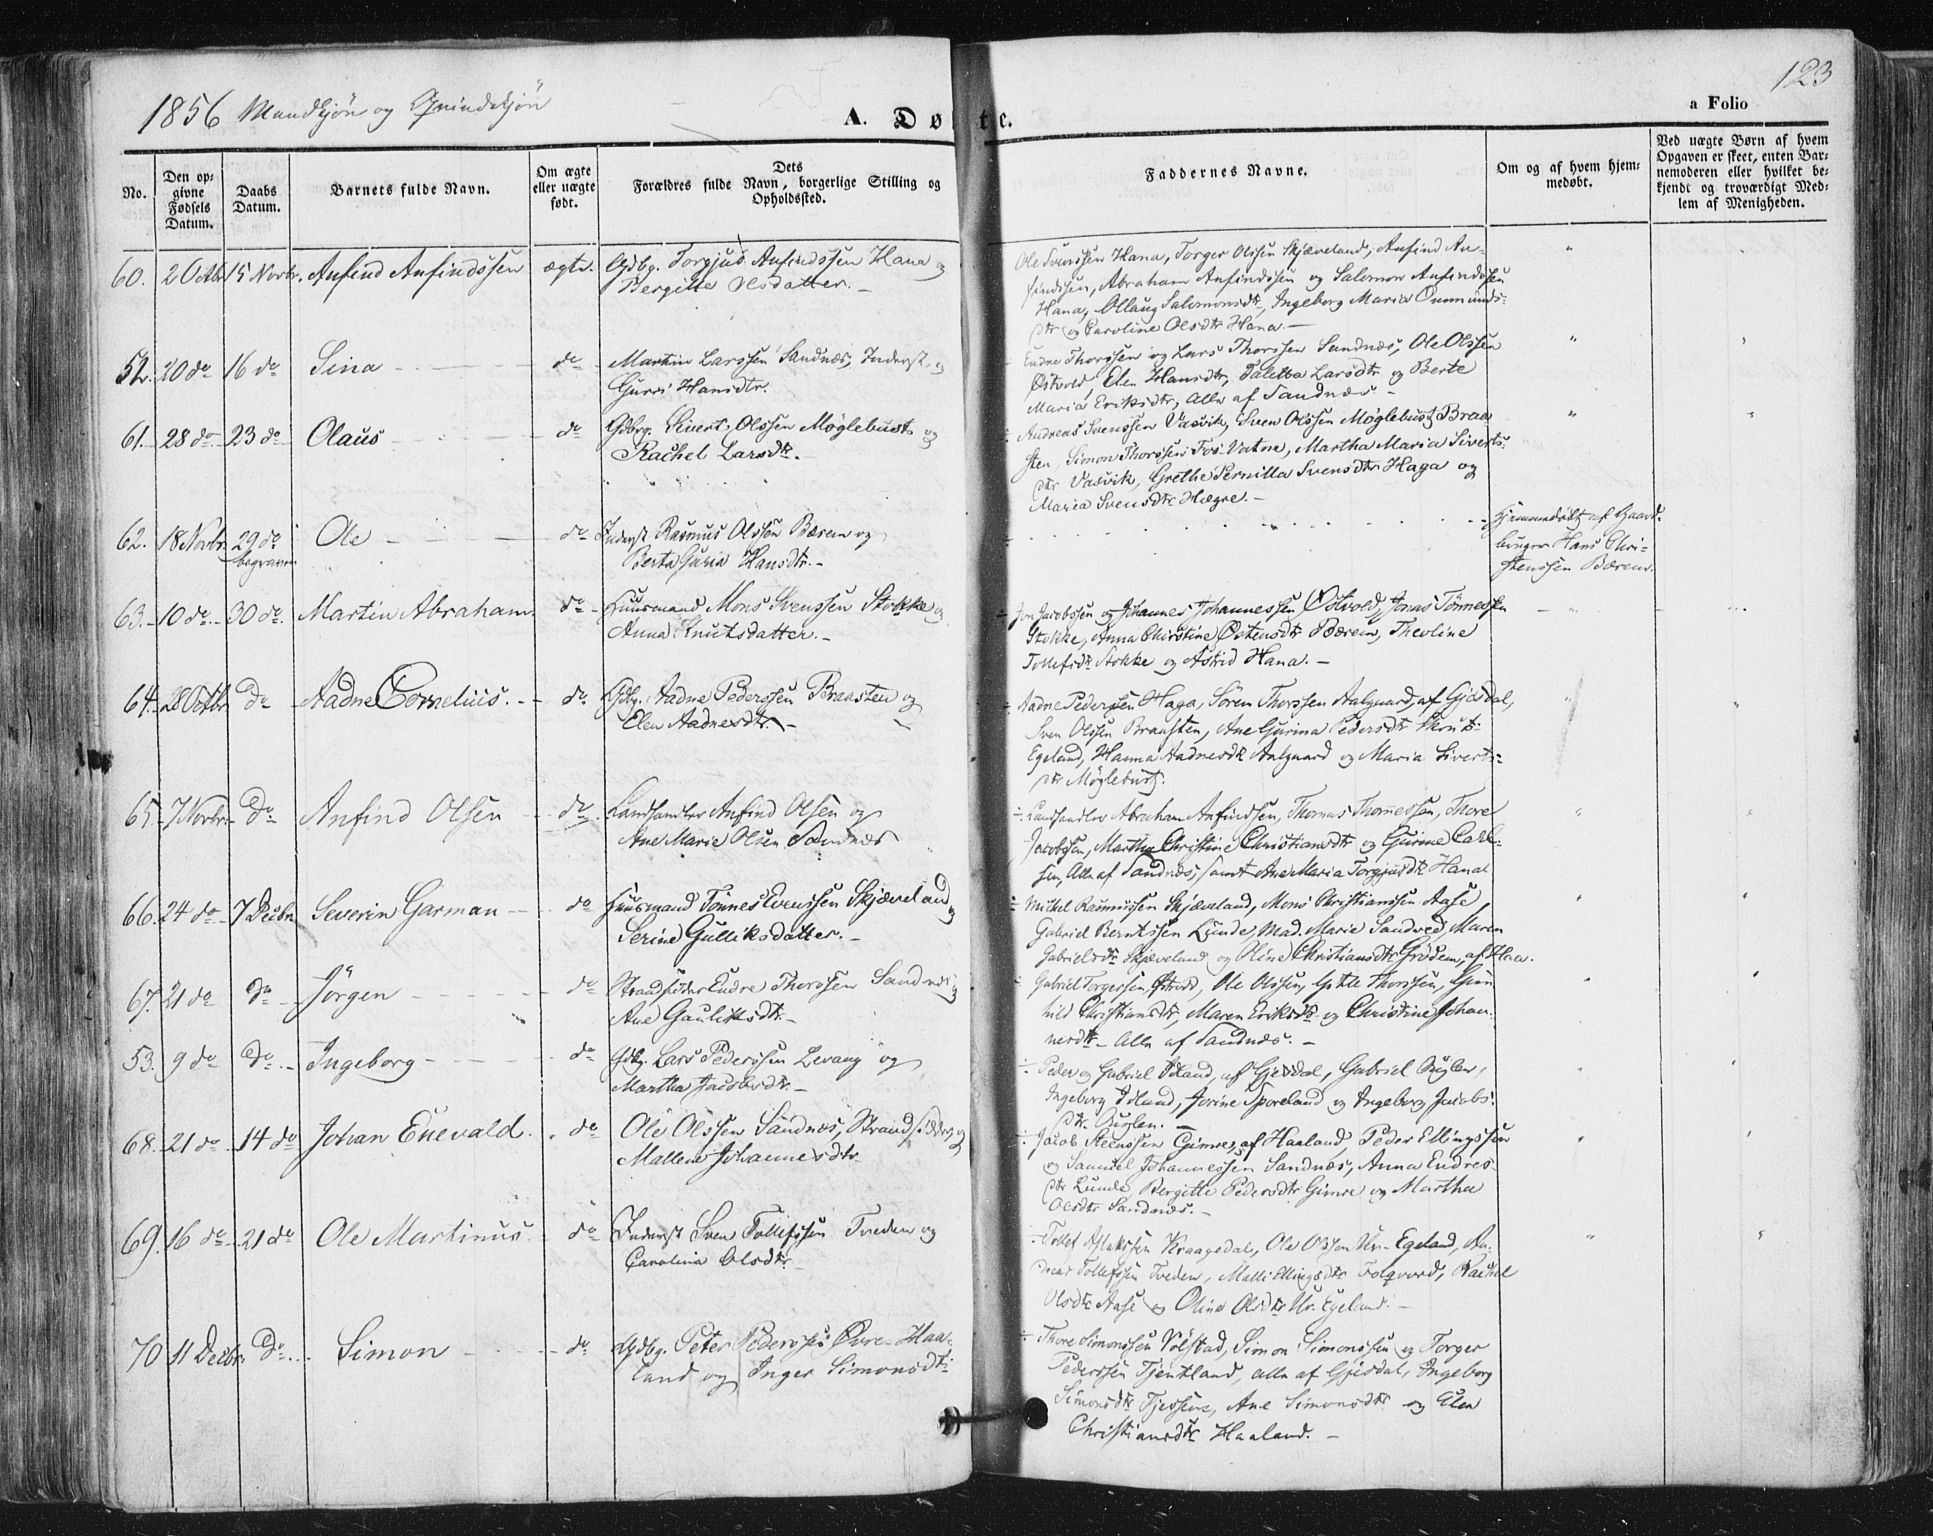 1856 Mandkjøn og Qvindekjøn
A. Døbte.
a Folio
123
No.
Den op-
givne
Fødsels
Datum.
Daabs
Datum.
Barnets fulde Navn.
Om ægte
eller uægte
født.
Dets
Forældres fulde Navn, borgerlige Stilling og
Opholdssted.
Faddernes Navne.
Om og af hvem hjem-
medøbt.
Ved uægte Børn af hvem
Opgaven er skeet, enten Bar-
nemoderen eller hvilket be-
kjendt og troværdigt Med-
lem af Menigheden.
60. 2 Octbr. 15 Novbr. Anfind Anfindssen ægte. Gdbg. Torgjus Anfindssen Hana og
Bergitte Olsdatter.
Ole Svenssen Hana, Torger Olssen Skjæveland, Anfind An-
findssen, Abraham Anfindssen og Salomon Anfindssen
Hana, Ollaug Salomonsdtr, Ingeborg Maria Ommunds-
dtr og Caroline Olsdtr Hana.
52. 20 do 16 do Sina do Martin Larssen Sandnæs, Inderst og
Gurri Hansdtr.
Endre Thorssen og Lars Thorssen Sandnæs, Ole Olssen
Østvold, Elen Hansdtr, Taletta Larsdtr og Berte
Maria Eriksdtr, Alle af Sandnæs.
61. 28 do 23 do Olaus do Gdbrg. Sivert Olssen Møglebust og
Rachel Larsdtr.
Andreas Svenssen Vasvik, Sven Olssen Møglebust, Braa-
sten, Simon Thorssen Fos-Vatne, Martha Maria Siverts-
dtr Vasvik, Grethe Pernilla Svensdtr Haga og
Maria Svensdtr Hægre.
62. 18 Novbr. 29 do begraven Ole do Inderst Rasmus Olssen Bærem og
Berta Guria Hansdtr.
Hjemmedøbt af Gaard-
bruger Hans Chri-
stenssen Bærem.
63. 10 do 30 do Martin Abraham. do Huusmand Mons Svenssen Stokke og
Anna Knutsdatter.
Jon Jacobssen og Johannes Johannessen Østvold, Jonas Tønnessen
Stokke, Anna Christine Østensdtr Bærem, Theoline
Tollefsdtr Stokke og Astrid Hana.
64. 28 Octbr do Aadne Cornelius. do Gdbg. Aadne Pederssen Braasten og
Elen Aadnesdtr.
Aadne Pederssen Haga, Søren Thorssen Aalgaard, af Gjesdal,
Sven Olssen Braasten, Ane Gurina Pedersdtr
Egeland, Hanna Aadnesdtr Aalgaard og Maria Siverts-
dtr Møglebust.
65. 7 Novbr. do Anfind Olsen do Landhandler Anfind Olsen og
Ane Marie Olsen Sandnæs
Landhandler Abraham Anfindssen, Thomas Thomessen, Thore
Jacobssen, Martha Christine Christiansdtr og Gurine Carl-
sen, Alle af Sandnæs, samt Ane Maria Torgjusdtr Hana.
66. 24 do 7 Decbr. Severin Garman do Huusmand Tønnes Evenssen Skjæveland og
Serine Gulliksdatter.
Mikkel Rasmussen Skjæveland, Mons Christianssen Aase,
Gabriel Berntssen Lunde, Mad. Marie Sandved, Maren
Gabrielsdtr Skjæveland og Oline Christiansdtr Grødem, af Haa.
67. 21 do do Jørgen do Strandsidder Endre Thorssen Sandnæs og
Ane Gauliksdtr.
Gabriel Torgerssen Østvold, Ole Olssen, Gitle Thorssen, Gun-
hild Christiansdtr, Maren Eriksdtr og Christine Johan-
nesdtr. Alle af Sandnæs.
53. 9 do do Ingeborg do Gdbg. Lars Pederssen Levang og
Martha Jacobsdtr.
Peder og Gabriel Idland, af Gjesdal, Gabriel Auglen,
Ingeborg Idland, Jorine Sporeland og Ingeborg Jacobs-
dtr Auglen.
68. 21 do 14 do Johan Enevald. do Ole Olssen Sandnæs, Strandsidder og
Mallene Johannesdtr.
Jacob Steenssen Gimre, af Haaland, Peder Ellingssen
og Samuel Johannessen Sandnæs, Anna Endres-
dtr Lunde, Bergitte Pedersdtr Gimre og Martha
Olsdtr Sandnæs.
69. 16 do 21 do Ole Martinus. do Inderst Sven Tollefssen Tveden og
Carolina Olsdtr
Tollef Aslakssen Kraagedal, Ole Olsson Ur-Egeland, An-
dreas Tollefssen Tveden, Malli Ellingsdtr Folqvord, Rachel
Olsdtr Aase og Oline Olsdtr Ur. Egeland.
70. 11 Decbr. do Simon do Gdbg. Peter Pederssen Øvre-Haa-
land og Inger Simonsdtr
Thore Simonssen Vølstad, Simon Simonssen og Torger
Pederssen Tjentland, alle af Gjesdal, Ingeborg
Simonsdtr Tjessem, Ane Simonsdtr og Elen
Christiansdtr Haaland.